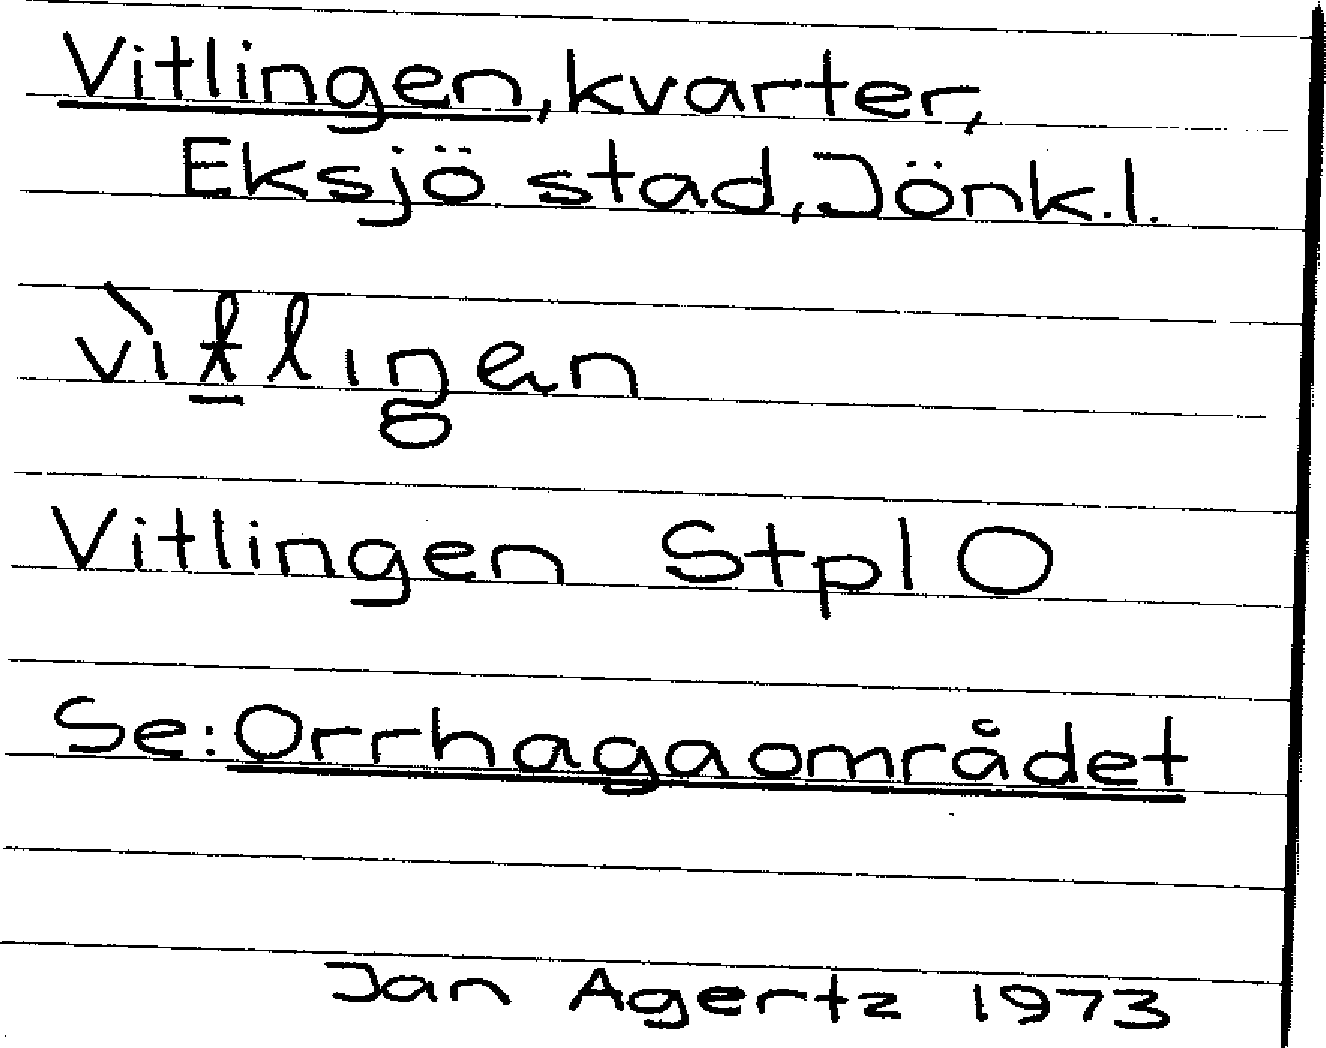 Vitlingen, kvarter,
Eksjö stad, Jönk.l.
vìtlıŋen
Vitlingen Stpl O
Se: Orrhagaområdet
Jan Agertz 1973